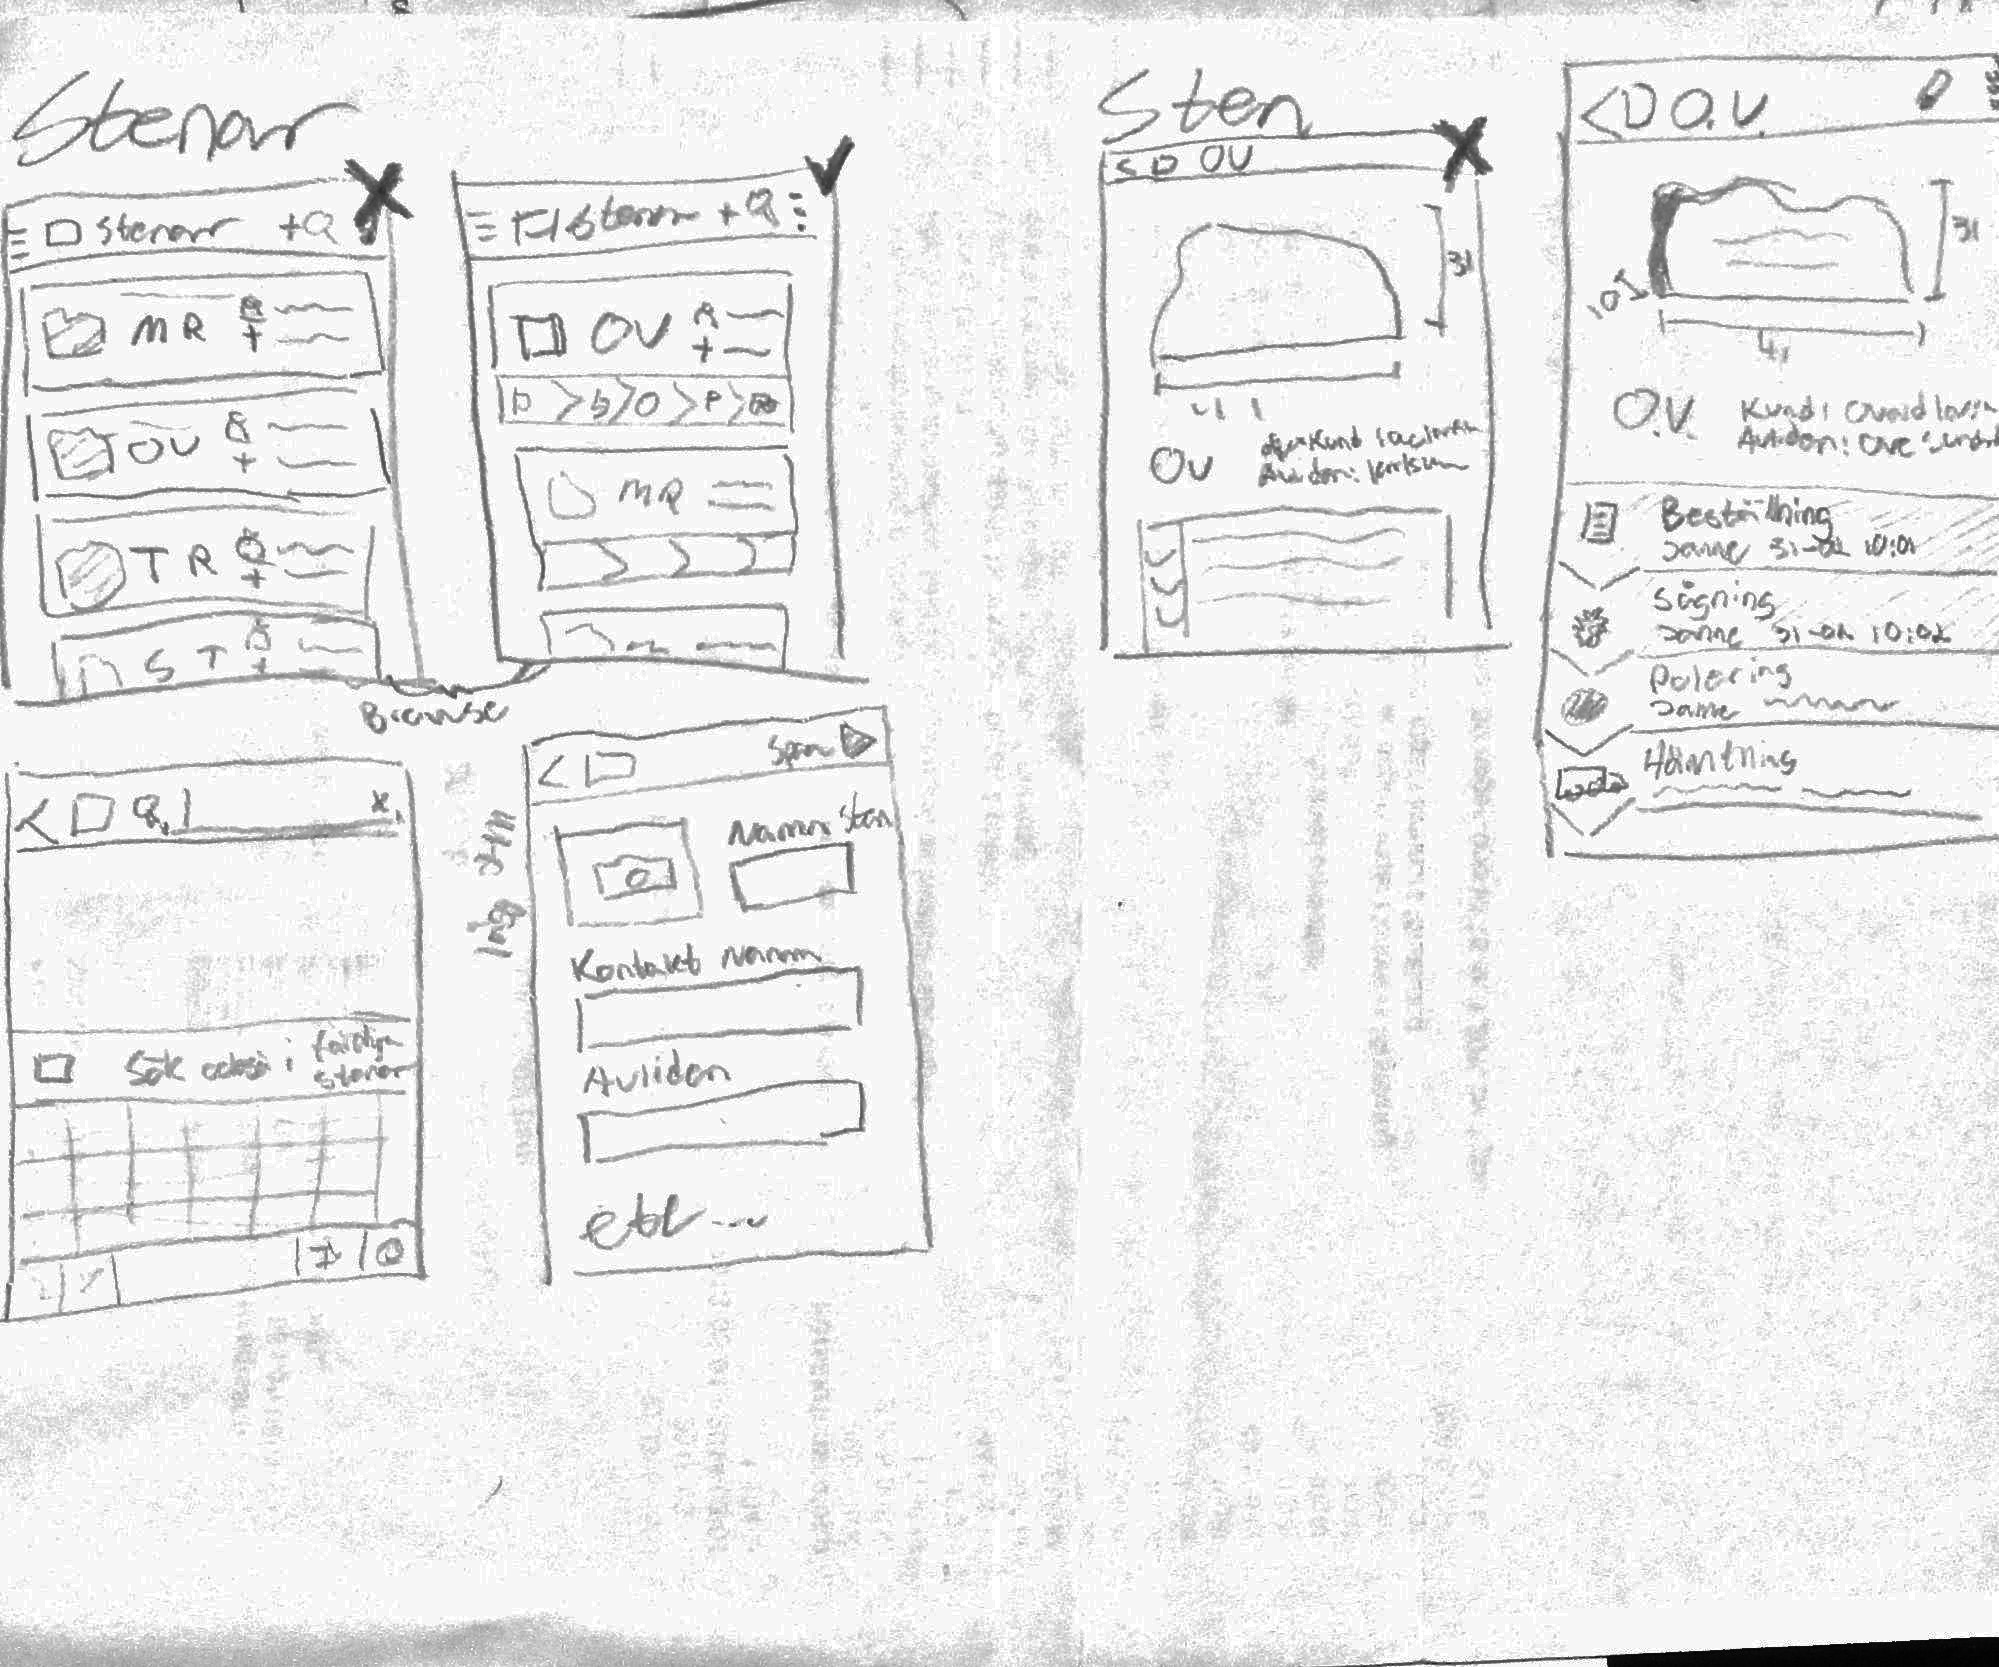 Stenar
Stenar +
MR
OV
TR
ST
Stenar +
OV
MR
Browse
Sök också i färdiga
stenar
Lägg till
Spara
Namn Sten
Kontakt Namn
Avliden
etc...
Sten
< OV
31
OV
Avliden:
< O.V.
31
10
41
O.V.
Kund:
Avliden: Ove
Beställning
Janne 31-02 10:01
Sågning
Janne 31-02 10:02
Polering
Janne
Hämtning